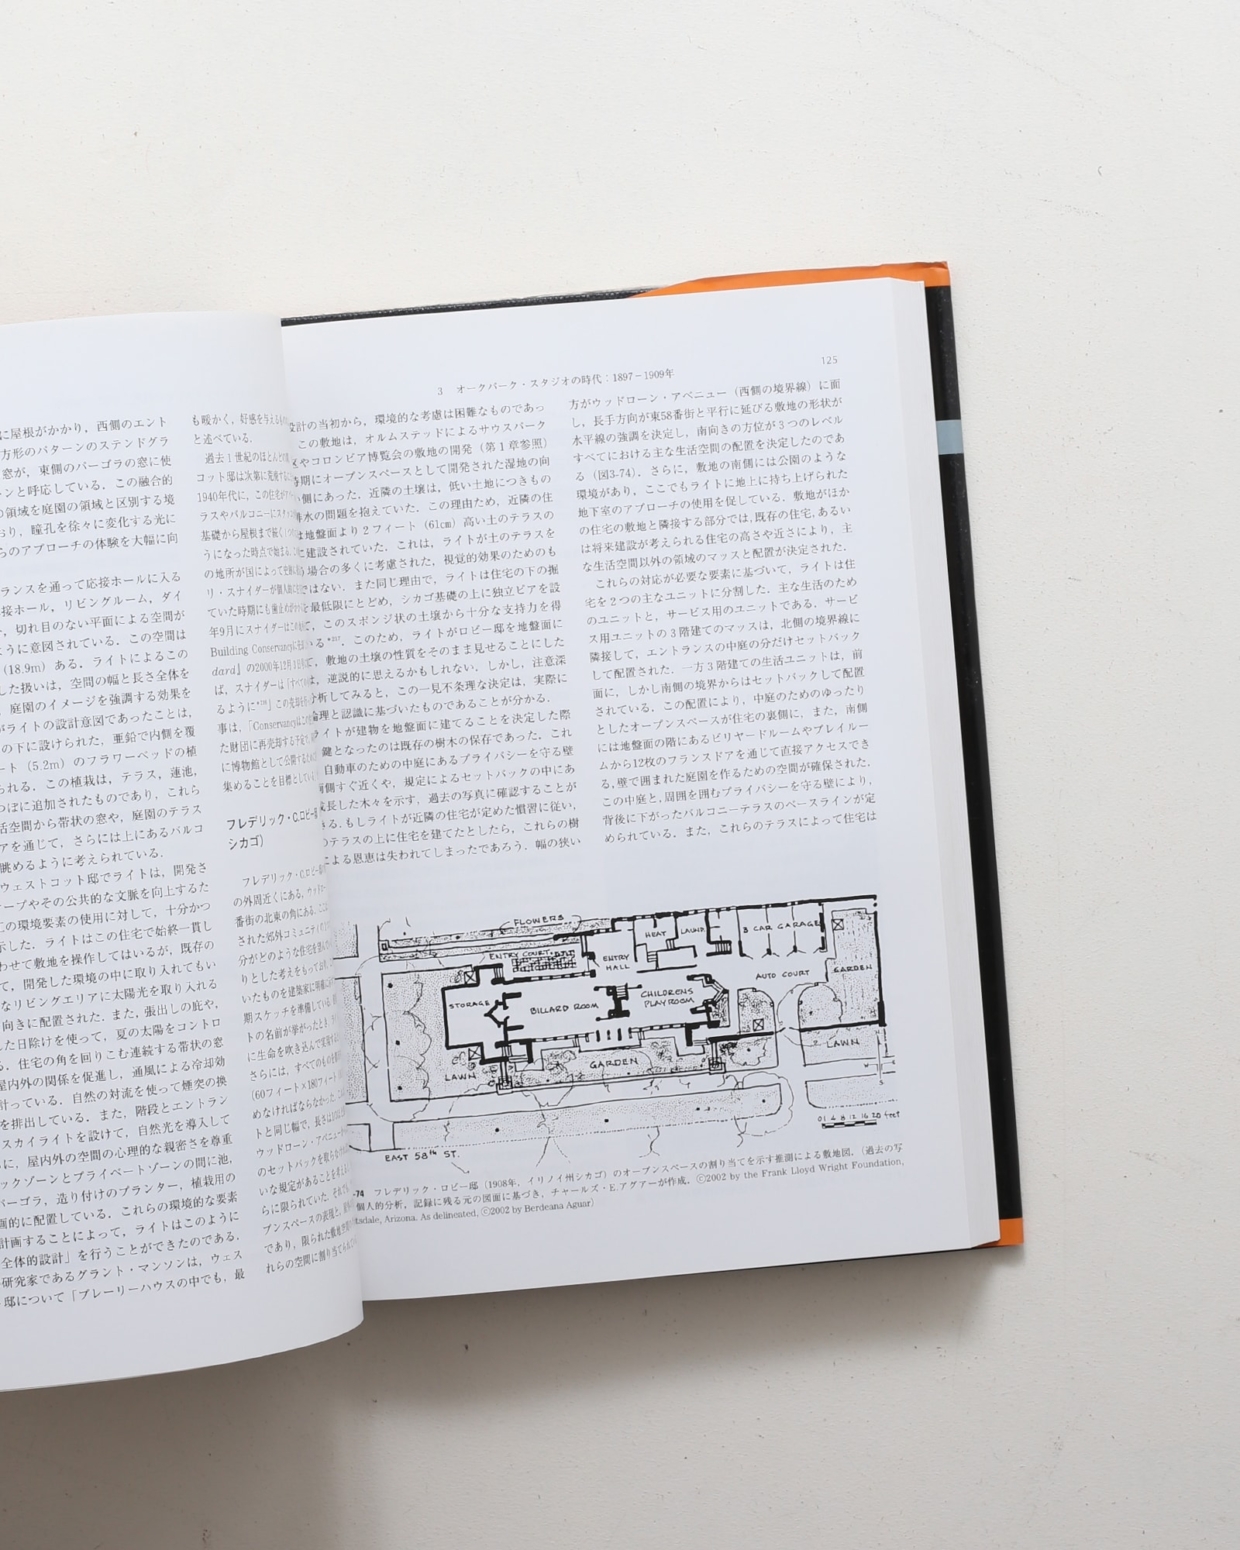 に屋根がかかり，西側のエント
方形のパターンのステンドグラ
窓が，東側のパーゴラの窓に使
ンと呼応している．この融合的
の領域を庭園の領域と区別する境
おり，瞳孔を徐々に変化する光に
らのアプローチの体験を大幅に向
ランスを通って応接ホールに入る
接ホール，リビングルーム，ダイ
，切れ目のない平面による空間が
ように意図されている．この空間は
（18.9m）ある．ライトによるこの
した扱いは，空間の幅と長さ全体を
，庭園のイメージを強調する効果を
がライトの設計意図であったことは，
の下に設けられた，亜鉛で内側を覆
ート（5.2m）のフラワーベッドの植
られる．この植栽は，テラス，蓮池，
つぼに追加されたものであり，これら
活空間から帯状の窓や，庭園のテラス
アを通じて，さらには上にあるバルコ
眺めるように考えられている．
ウェストコット邸でライトは，開発さ
ケープやその公共的な文脈を向上するた
この環境要素の使用に対して，十分かつ
示した．ライトはこの住宅で始終一貫し
わせて敷地を操作してはいるが，既存の
て，開発した環境の中に取り入れてもい
なリビングエリアに太陽光を取り入れる
向きに配置された．また，張出しの庇や，
した日除けを使って，夏の太陽をコントロ
る．住宅の角を回りこむ連続する帯状の窓
屋内外の関係を促進し，通風による冷却効
計っている．自然の対流を使って煙突の換
を排出している．また，階段とエントラン
スカイライトを設けて，自然光を導入して
に，屋内外の空間の心理的な親密さを尊重
ックゾーンとプライベートゾーンの間に池，
パーゴラ，造り付けのプランター，植栽用の
画的に配置している．これらの環境的な要素
計画することによって，ライトはこのように
全体的設計」を行うことができたのである．
研究家であるグラント・マンソンは，ウェス
邸について「プレーリーハウスの中でも，最
も暖かく，好感を与える
と述べている．
過去1世紀のほとんどの
コット邸は次第に荒廃する
1940年代に，この住宅が
ラスやバルコニーに
基礎から屋根まで届く
うになった時点で始まる
の地所が国によって
リ・スナイダーが個人的に
ていた時期にも
年9月にスナイダーは
Building Conservancy
dard』の2000年12月
ば，スナイダーは「すべて
るように」この
事は，「Conservancyは
た財団に再売却する
に博物館として公開する
集めることを目標として
フレデリック・C.ロビー邸
シカゴ）
フレデリック・C.ロビー邸
の外周近くにある，ウッド
番街の北東の角にある．
された郊外コミュニティ
分がどのような住宅を
りとした考えをもって
いたものを建築家に明確に
期スケッチを準備している
トの名前が挙がったとき
に生命を吹き込んで
さらには，すべてのもの
（60フィート×180フィート
めなければならなかった
トと同じ幅で，長さは
ウッドローン・アベニュー
のセットバックを
いな規定があることを
らに限られていた．
プンスペースの
であり，限られた敷地
れらの空間に割り当てられ
3　オークパーク・スタジオの時代：1897－1909年
125
設計の当初から，環境的な考慮は困難なものであっ
この敷地は，オルムステッドによるサウスパーク
区やコロンビア博覧会の敷地の開発（第1章参照）
時期にオープンスペースとして開発された湿地の向
い側にあった．近隣の土壌は，低い土地につきもの
排水の問題を抱えていた．この理由ため，近隣の住
は地盤面より2フィート（61cm）高い土のテラスの
に建設されていた．これは，ライトが土のテラスを
場合の多くに考慮された，視覚的効果のためのも
ではない．また同じ理由で，ライトは住宅の下の掘
を最低限にとどめ，シカゴ基礎の上に独立ピアを設
，このスポンジ状の土壌から十分な支持力を得
いる．このため，ライトがロビー邸を地盤面に
て，敷地の土壌の性質をそのまま見せることにした
は，逆説的に思えるかもしれない．しかし，注意深
分析してみると，この一見不条理な決定は，実際に
倫理と認識に基づいたものであることが分かる．
ライトが建物を地盤面に建てることを決定した際
鍵となったのは既存の樹木の保存であった．これ
自動車のための中庭にあるプライバシーを守る壁
南側すぐ近くや，規定によるセットバックの中にあ
成長した木々を示す，過去の写真に確認することが
きる．もしライトが近隣の住宅が定めた慣習に従い，
のテラスの上に住宅を建てたとしたら，これらの樹
による恩恵は失われてしまったであろう．幅の狭い
方がウッドローン・アベニュー（西側の境界線）に面
し，長手方向が東58番街と平行に延びる敷地の形状が
水平線の強調を決定し，南向きの方位が3つのレベル
すべてにおける主な生活空間の配置を決定したのであ
る（図3-74）．さらに，敷地の南側には公園のような
環境があり，ここでもライトに地上に持ち上げられた
地下室のアプローチの使用を促している．敷地がほか
の住宅の敷地と隣接する部分では，既存の住宅，あるい
は将来建設が考えられる住宅の高さや近さにより，主
な生活空間以外の領域のマッスと配置が決定された．
これらの対応が必要な要素に基づいて，ライトは住
宅を2つの主なユニットに分割した．主な生活のため
のユニットと，サービス用のユニットである．サービ
ス用ユニットの3階建てのマッスは，北側の境界線に
隣接して，エントランスの中庭の分だけセットバック
して配置された．一方3階建ての生活ユニットは，前
面に，しかし南側の境界からはセットバックして配置
されている．この配置により，中庭のためのゆったり
としたオープンスペースが住宅の裏側に，また，南側
には地盤面の階にあるビリヤードルームやプレイルー
ムから12枚のフランスドアを通じて直接アクセスでき
る，壁で囲まれた庭園を作るための空間が確保された．
この中庭と，周囲を囲むプライバシーを守る壁により，
背後に下がったバルコニーテラスのベースラインが定
められている．また，これらのテラスによって住宅は
FLOWERS
ENTRY COURT
ENTRY
HALL
HEAT
LAUND.
3 CAR GARAGE
AUTO COURT
GARDEN
STORAGE
BILLARD ROOM
CHILDRENS
PLAYROOM
GARDEN
LAWN
LAWN
0 1 4 8 12 16 20 feet
EAST 58TH ST.
-74　フレデリック・ロビー邸（1908年，イリノイ州シカゴ）のオープンスペースの割り当てを示す推測による敷地図．（過去の写
個人的分析，記録に残る元の図面に基づき，チャールズ・E.アグアーが作成．©2002 by the Frank Lloyd Wright Foundation,
tsdale, Arizona. As delineated, ©2002 by Berdeana Aguar）